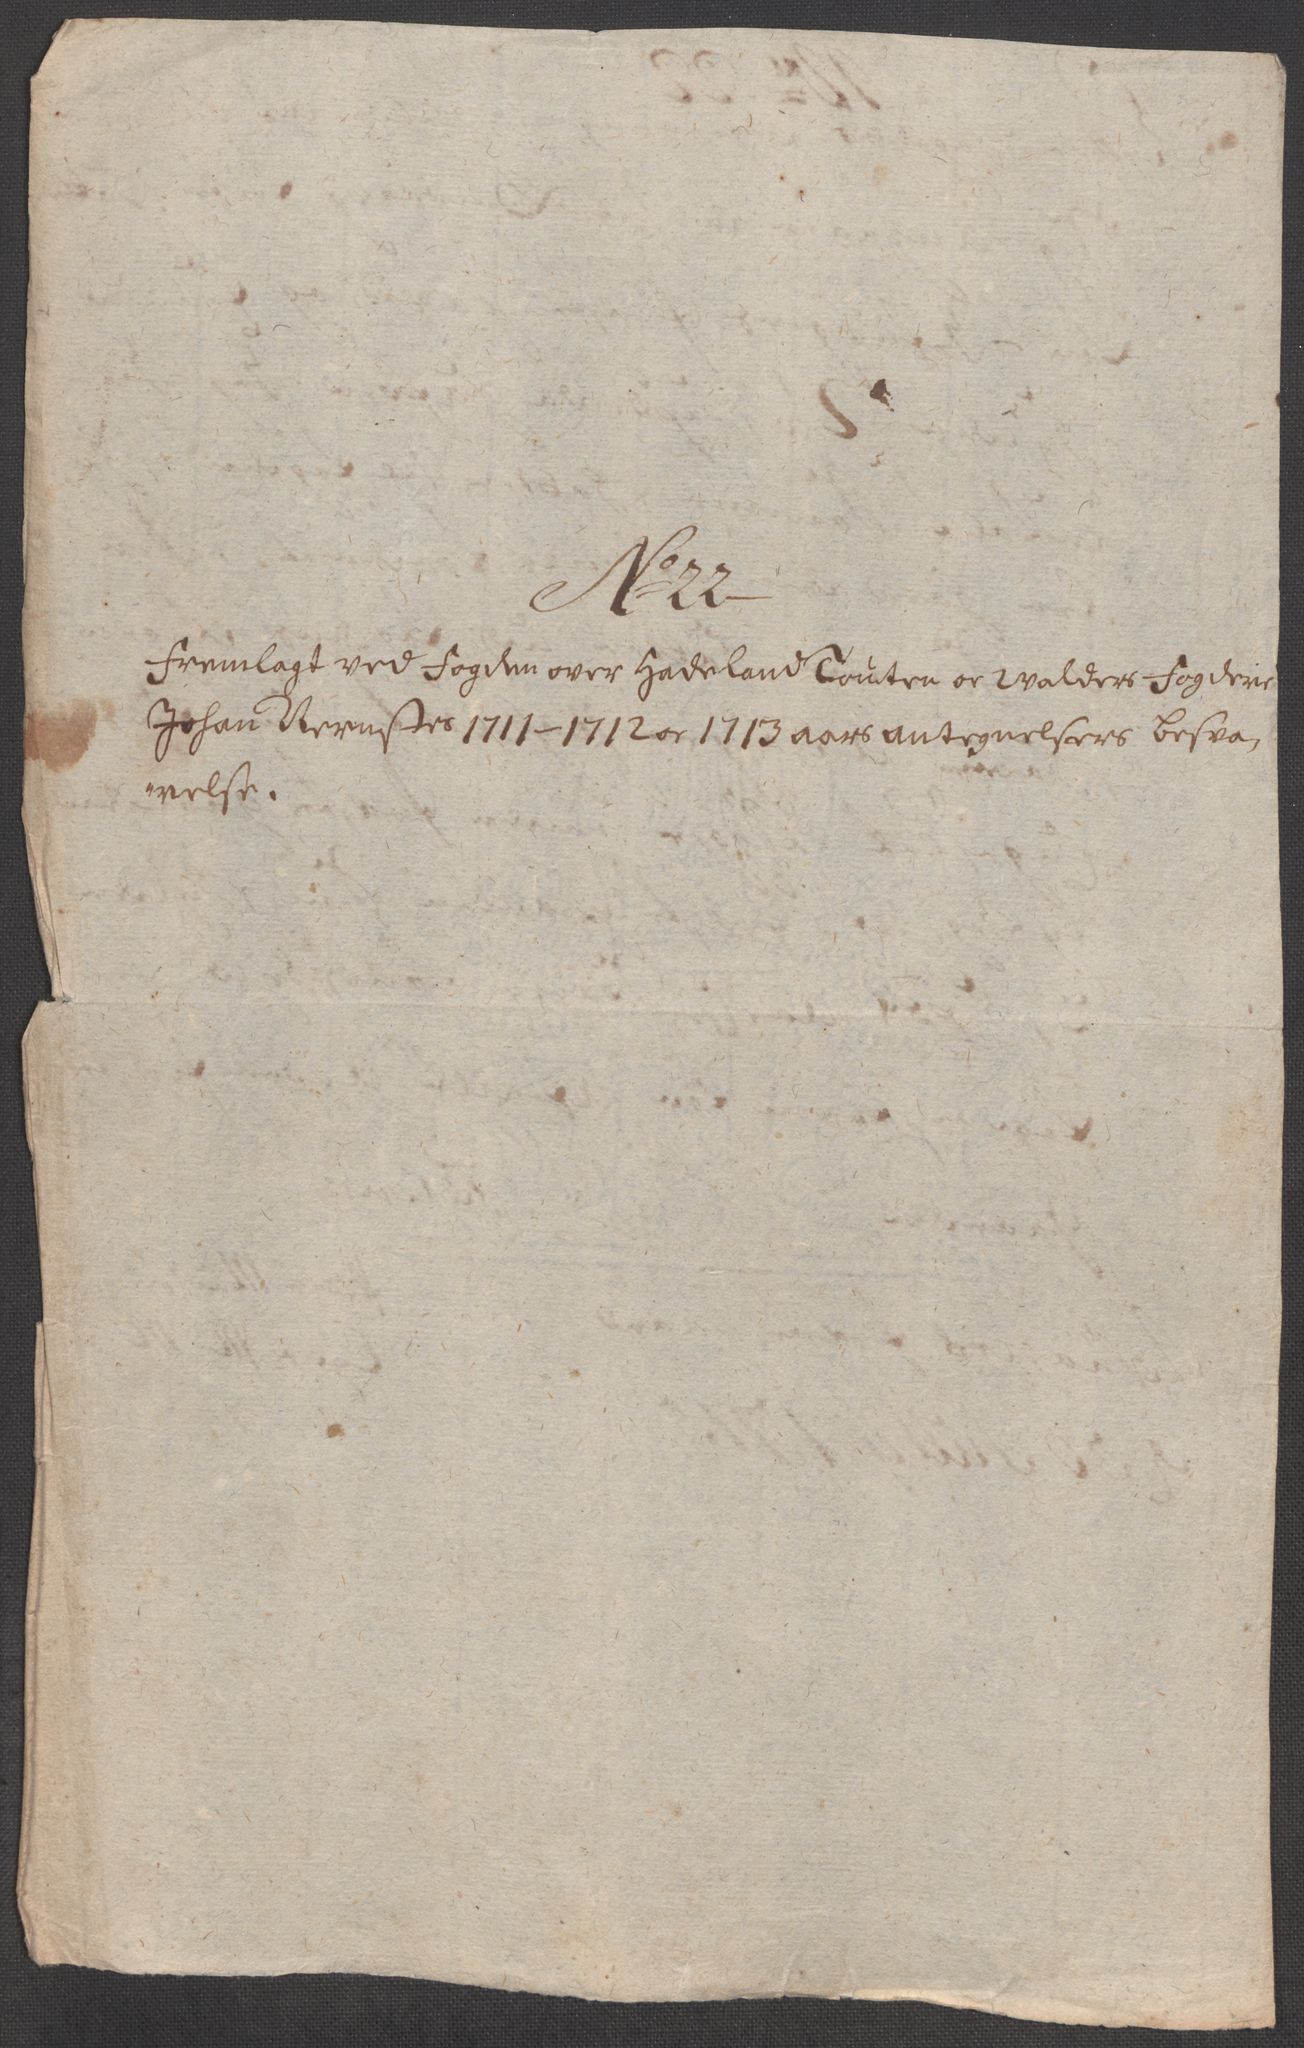 No 22
Fremlagt ved Fogden over Hadeland Touten oc Walders Fogderie
Johan Nernstes 1711 - 1712 oc 1713 aars antegnelsers besva,
relse.